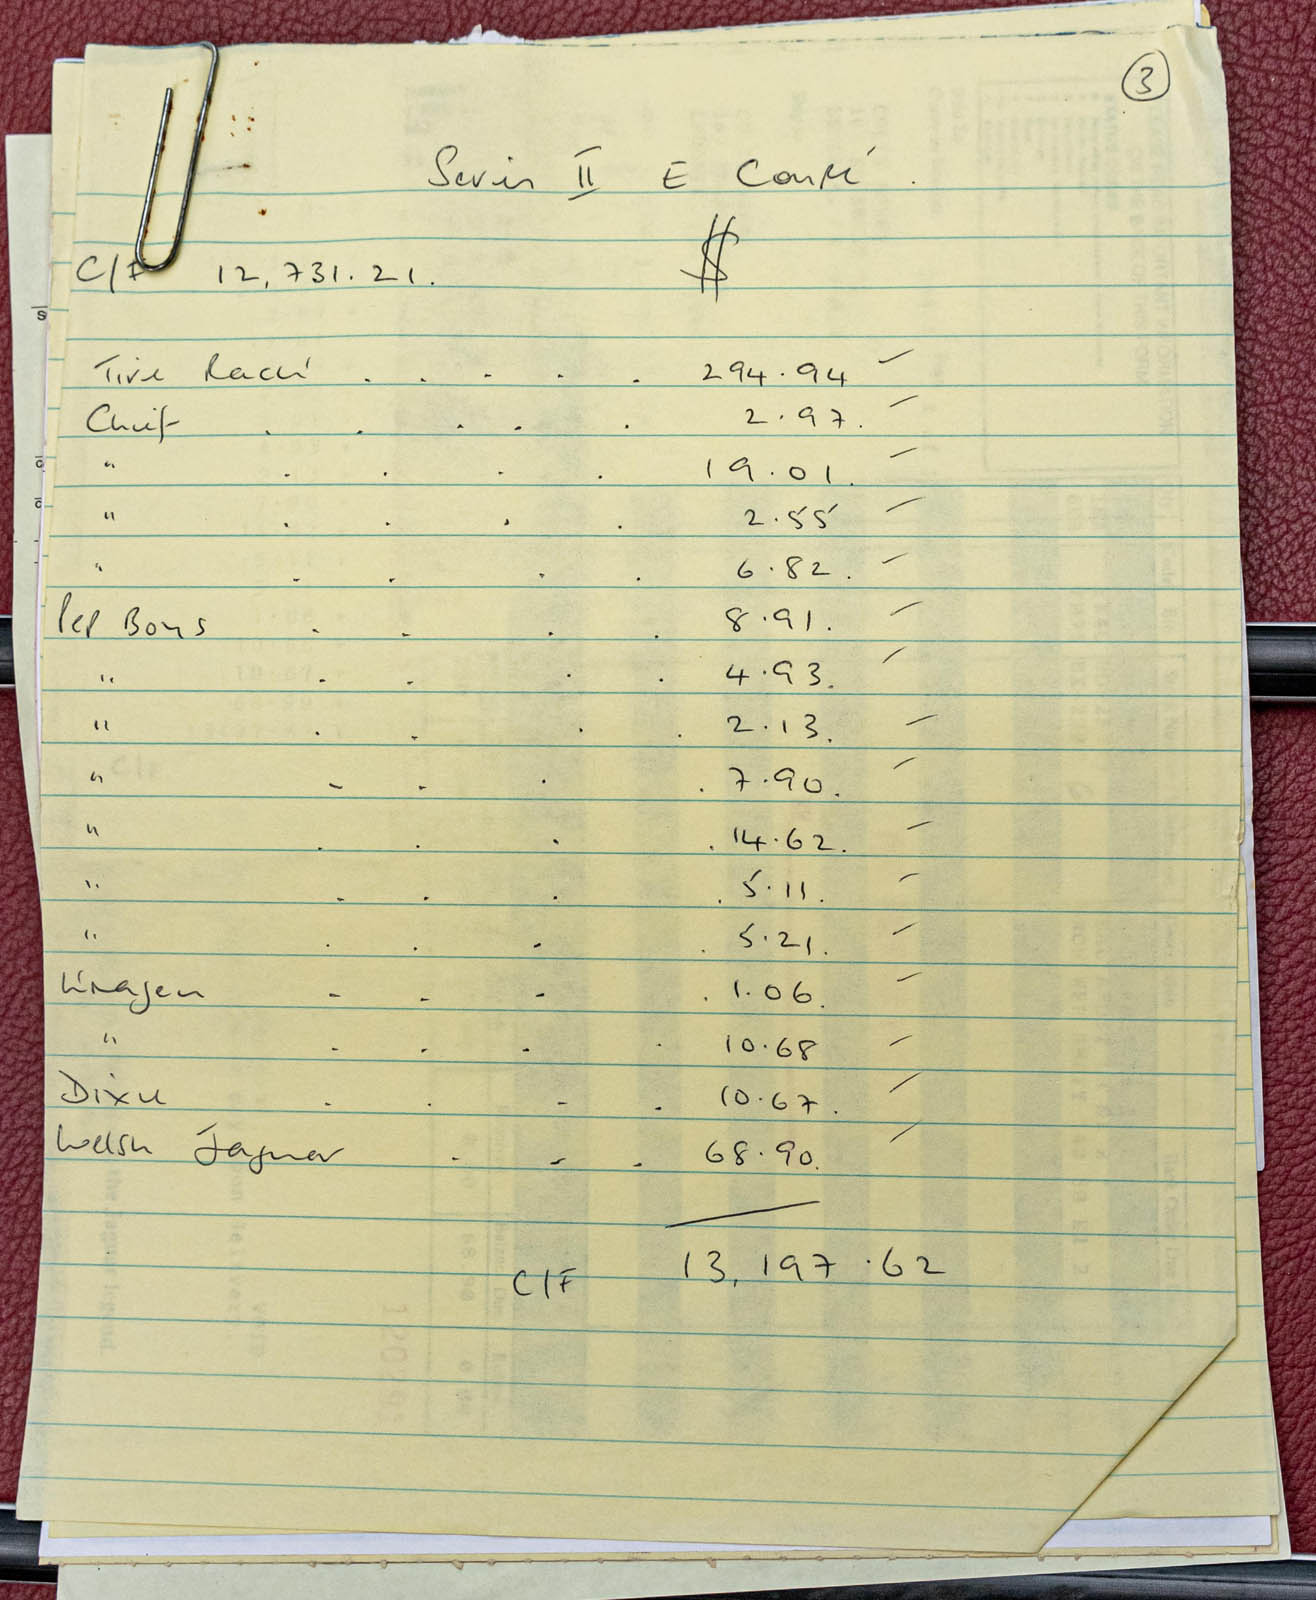 3
Series II E Coupé.
$
C/F 12,731.21.
Tire Rack . . . . . 294.94
Chief . . . . . 2.97.
" . . . . 19.01.
" . . . . 2.55
" . . . . 6.82.
Pep Boys . . . . 8.91.
" . . . . 4.93.
" . . . . 2.13.
" - - . . 7.90.
" . . . . 14.62.
" - . . . 5.11.
" . . . . 5.21.
Kragen - - - . 1.06.
" . . . . 10.68
Dixie . . - . 10.67.
Welsh Jaguar . - . 68.90.
C/F 13,197.62